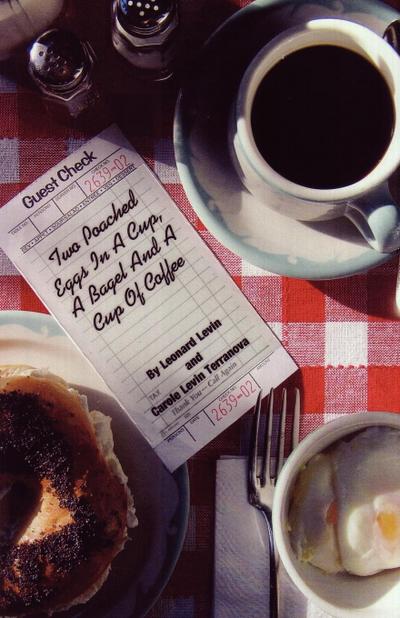 Guest Check
2639-02
Two Poached
Eggs In A Cup,
A Bagel And A
Cup Of Coffee
By Leonard Levin
and
Carole Levin Terranova
TAX
Thank You - Call Again
2639-02